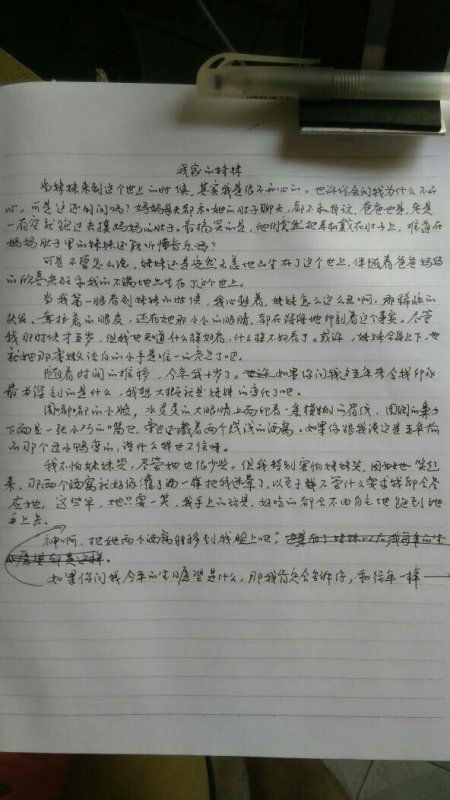 我家的妹妹
当妹妹来到这个世上的时候，其实我是很不开心的。也许你会问我为什么不开
心，可是这还用问吗？妈妈每天都和她的肚子聊天，都不和我说，爸爸也是，老是
一有空就跑过去摸妈妈的肚子。最搞笑的是，他们竟然把耳机戴在肚子上，难道在
妈妈肚子里的妹妹还能听懂音乐吗？
可是不管怎么说，妹妹还是安然无恙地出生在了这个世上，伴随着爸爸妈妈
的欣喜和我的不满地出生在了这个世上。
当我第一眼看到妹妹的时候，我心想着，妹妹怎么这么丑啊，那稀疏的
头发、耷拉着的眼皮，还有她那小小的眼睛，都在深深地印刻着这个事实。尽管
我那时候才五岁，但我也知道什么样好看，什么样不好看了。或许，妹妹全身上下，也
就她那 嫩洁白的小手是唯一的亮点了吧。
随着时间的推移，今年我十岁了。如果你问我这五年来令我印象
最为深刻的是什么，我想大概就是妹妹的变化了吧。
圆嘟嘟的小脸，水灵灵的大眼睛上面印着一条 的眉线，圆圆的鼻子
下面是一张小巧的嘴巴，旁边还藏着两个浅浅的酒窝。如果你跟我说这是五年前
的那个丑小鸭变的，说什么我也不信呀。
我不怕妹妹哭，尽管她也很少哭。但我特别害怕妹妹笑，因为她一笑起
来，那两个酒窝就好似灌了酒一样把我迷晕了，以至于无论什么要求我都会答
应她，这些年，她只要一笑，我手上的玩具，好吃的都会不由自主地跑到她
手上去。
神啊，把她两个酒窝转移到我脸上吧！
如果你问我今年的生日愿望是什么，那我肯定会告诉你，和往年一样——